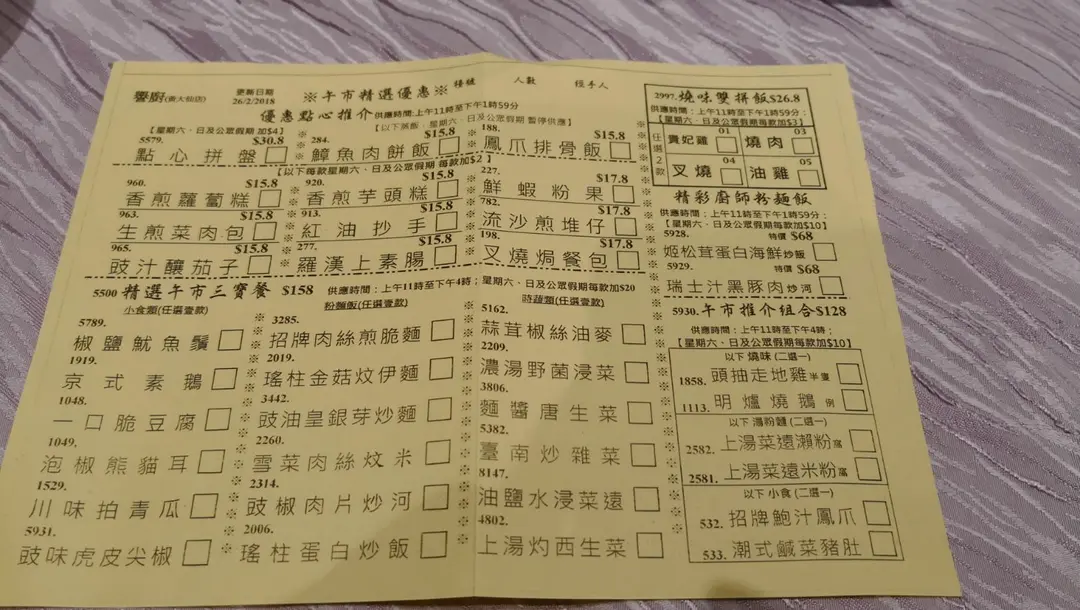 譽廚(黃大仙店)
更新日期
26/2/2018
※午市精選優惠※
檯號
人數
經手人
優惠點心推介 供應時間:上午11時至下午1時59分
【星期六、日及公眾假期 加$4】
【以下蒸飯,星期六、日及公眾假期 暫停供應】
5579. $30.8
點心拼盤
284. $15.8
鱆魚肉餅飯
188. $15.8
鳳爪排骨飯
【以下每款星期六、日及公眾假期 每款加$2】
960. $15.8
香煎蘿蔔糕
920. $15.8
香煎芋頭糕
227. $17.8
鮮蝦粉果
963. $15.8
生煎菜肉包
913. $15.8
紅油抄手
782. $17.8
流沙煎堆仔
965. $15.8
豉汁釀茄子
277. $15.8
羅漢上素腸
198. $17.8
叉燒焗餐包
5500 精選午市三寶餐 $158 供應時間:上午11時至下午4時; 星期六、日及公眾假期加$20
小食類(任選壹款)
5789.
椒鹽魷魚鬚
1919.
京式素鵝
1048.
一口脆豆腐
1049.
泡椒熊貓耳
1529.
川味拍青瓜
5931.
豉味虎皮尖椒
粉麵飯(任選壹款)
3285.
招牌肉絲煎脆麵
2019.
瑤柱金菇炆伊麵
3442.
豉油皇銀芽炒麵
2260.
雪菜肉絲炆米
2314.
豉椒肉片炒河
2006.
瑤柱蛋白炒飯
時蔬類(任選壹款)
5162.
蒜茸椒絲油麥
2209.
濃湯野菌浸菜
3806.
麵醬唐生菜
5382.
臺南炒雜菜
8147.
油鹽水浸菜遠
4802.
上湯灼西生菜
2997.燒味雙拼飯$26.8
供應時間:上午11時至下午1時59分:
【星期六、日及公眾假期每款加$3】
任選2款
貴妃雞 01
燒肉 03
叉燒 04
油雞 05
精彩廚師粉麵飯
供應時間:上午11時至下午1時59分:
【星期六、日及公眾假期每款加$10】
5928. 特價 $68
姬松茸蛋白海鮮炒飯
5929. 特價 $68
瑞士汁黑豚肉炒河
5930.午市推介組合$128
供應時間:上午11時至下午4時;
【星期六、日及公眾假期每款加$10】
以下 燒味 (二選一)
1858. 頭抽走地雞半隻
1113. 明爐燒鵝 例
以下 湯粉麵 (二選一)
2582. 上湯菜遠瀨粉窩
2581. 上湯菜遠米粉窩
以下 小食 (二選一)
532. 招牌鮑汁鳳爪
533. 潮式鹹菜豬肚